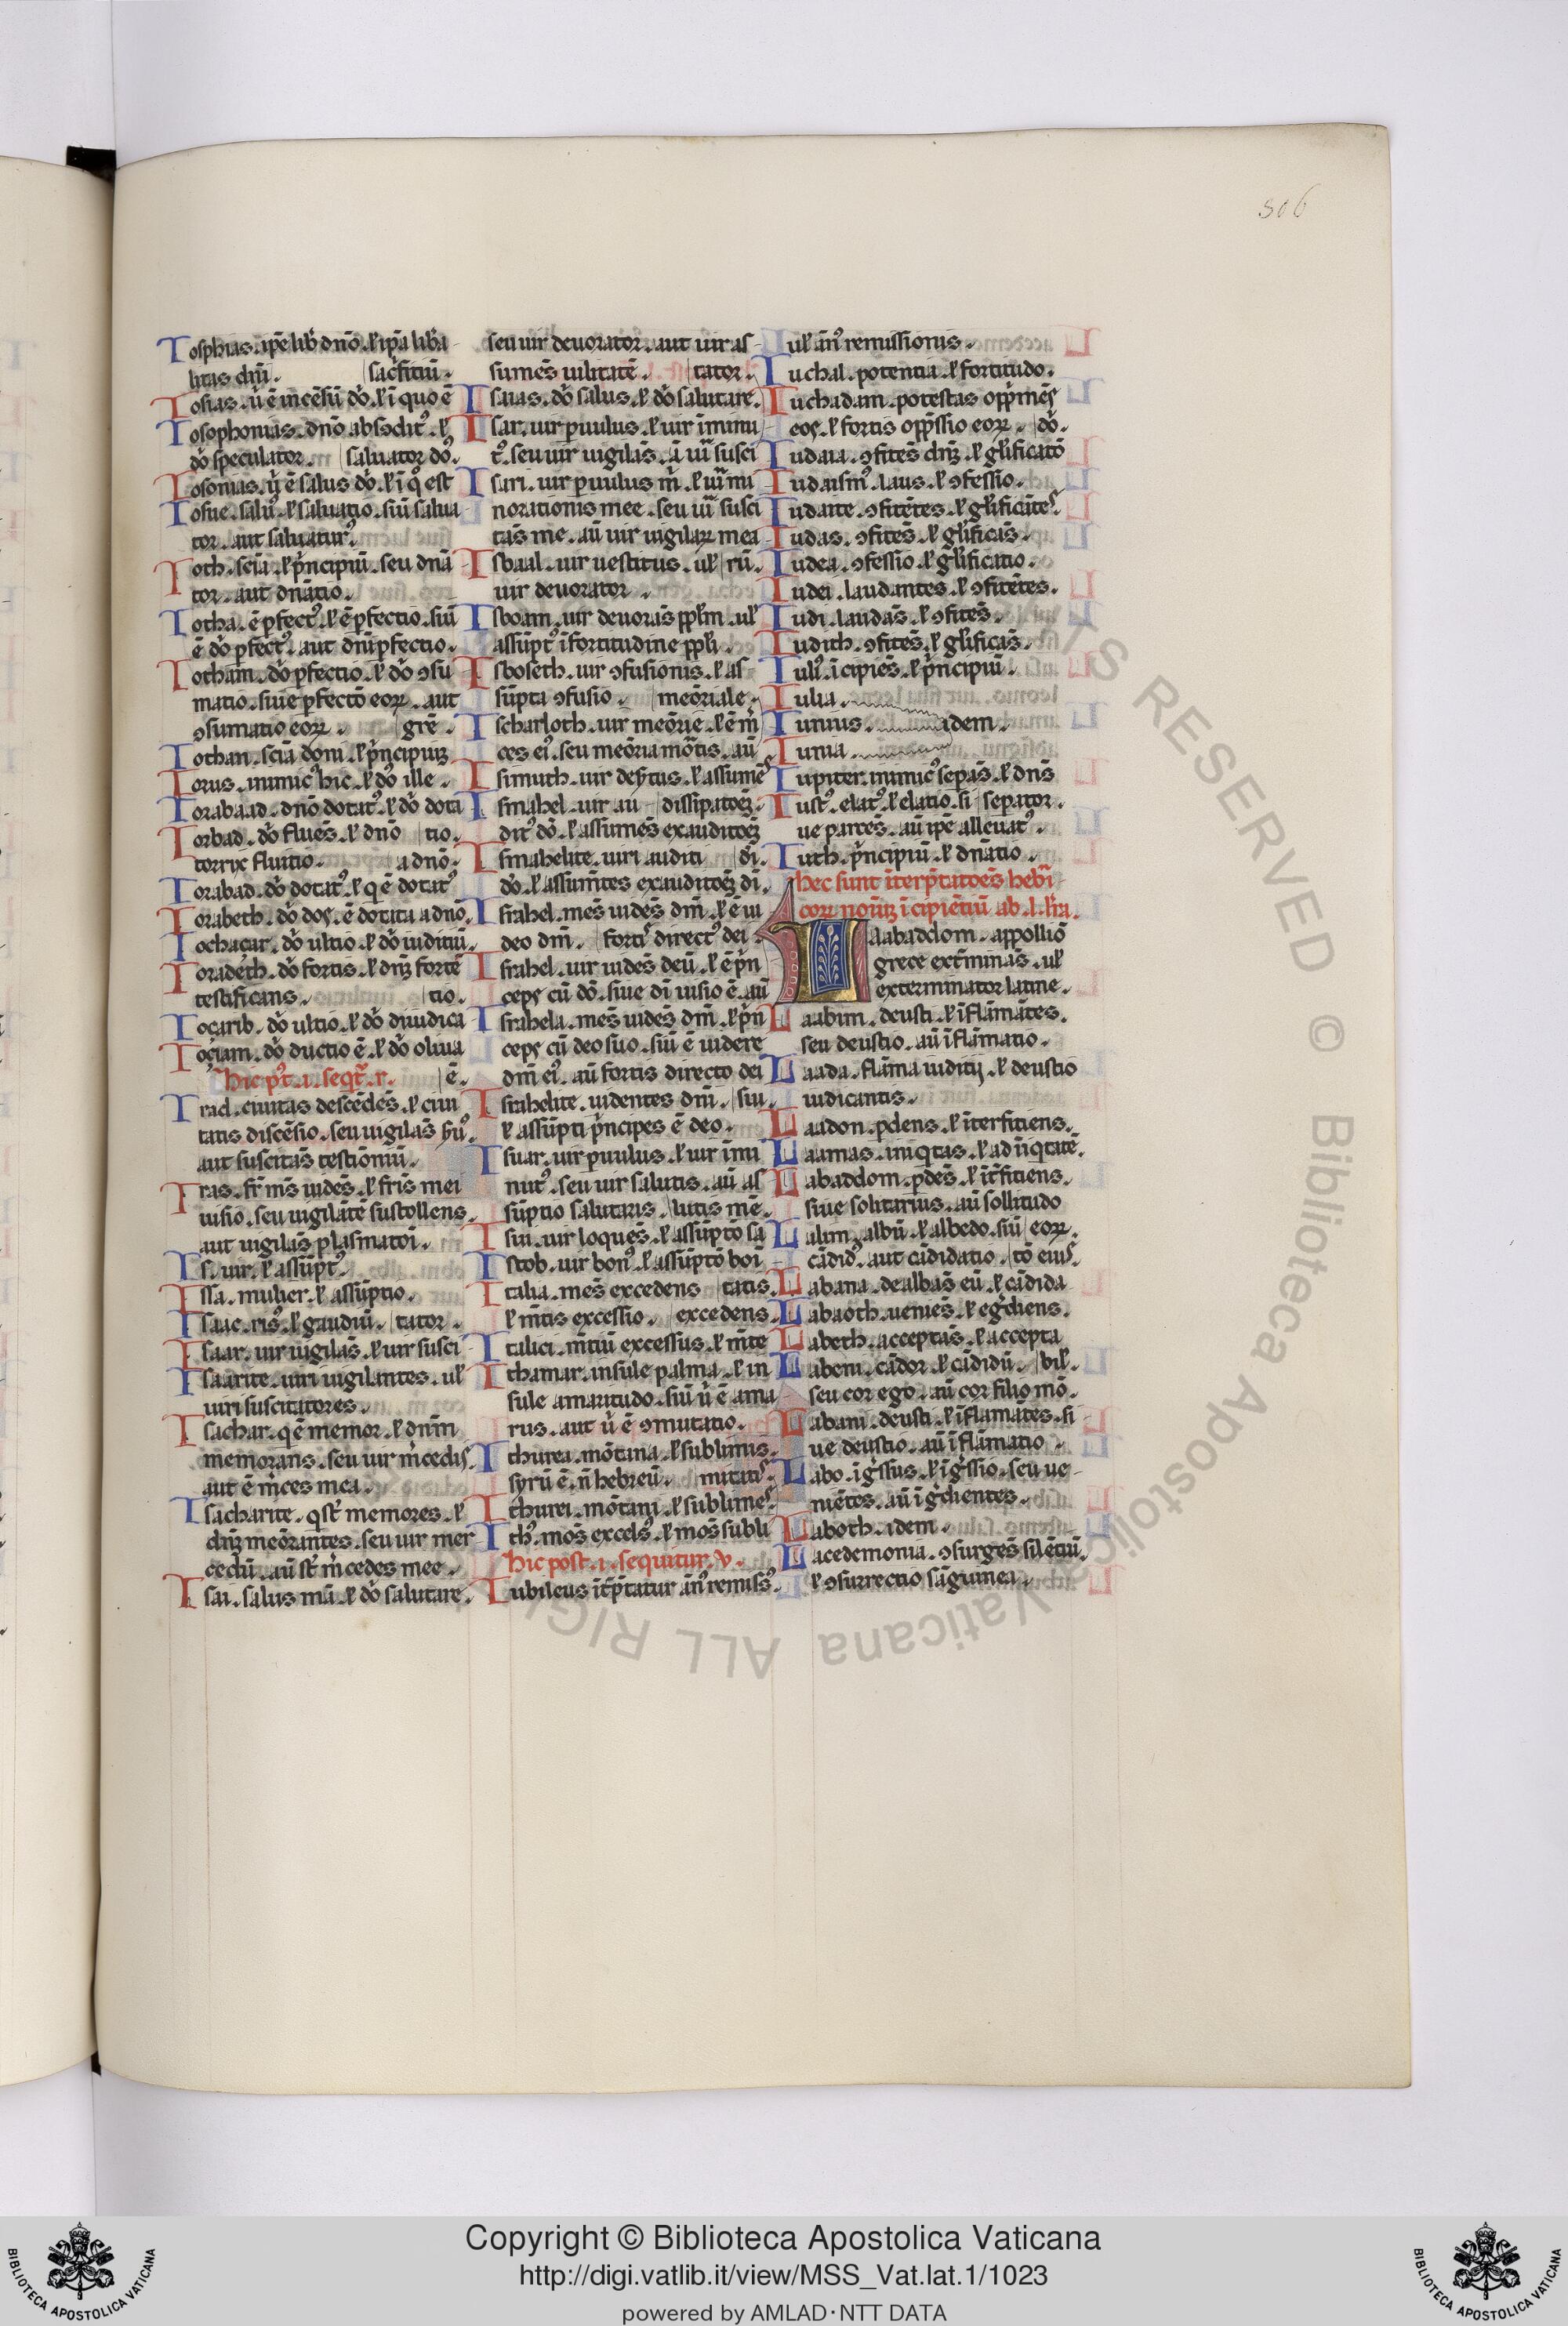 306
Iosphias. ip̄e lib̄ dn̄o. ł ip̄a liba
litas dn̄i. sac̾fitiū.
Iosias. ū ē incēsū dō. ł i quo ē
Iosophonias. dn̄o absɔdit᷒. ł
dō speculator. saluator dō.
Iosonias. ū ē salus dō. ł i q̊ est
Iosue. salū. ł saluatio. siū salua
tor. aut saluatur᷒.
Ioth. sciā. ł pͥncipiū. seu dn̄a
tor. aut dn̄atio.
Iotha. ē ꝑfect᷒. ł ē ꝑfectio. siū
ē dō ꝑfect᷒. aut dn̄i ꝑfectio.
Iotham. dō ꝑfectio. ł dō ꝯsu
matio. siue ꝑfectō eoꝝ. aut
ꝯsumatio eoꝝ. grē.
Iothan. sciā doni. ł pͥncipiuꝫ
Iorus. inimic᷒ hic. ł dō ille.
Iorabaad. dn̄o dotat᷒. ł dō dota
Iorbad. dō fluēs. ł dn̄o tio.
torrix fluitio. a dn̄o.
Iorabad. dō dotat᷒. ł q̄ ē dotat᷒
Iorabeth. dō dos. ē dotata a dn̄o.
Iochacar. dō ultio. ł dō iuditiū.
Ioradeth. dō fortis. ł dn̄ꝫ fortē
testificans. tio.
Iocarib. dō ultio. ł dō diiudica
Ioçiam. dō ductio ē. ł dō oliua
Hic p᷒t. i. seqt᷑. r. ē.
Irad. ciuitas descēdēs. ł ciui
tatis discēsio. seu uigilās hū᷒.
aut suscitās testioniū.
Iras. fr̄ m̄s uidēs. ł fris mei
uisio. seu uigilātē sustollens.
aut uigilās plasmatoī.
Is. uir. ł assūpt᷒.
Issa. mulier. ł assūptio.
Isaac. ris᷒. ł gaudiū. tator.
Isaar. uir uigilās. ł uir susci
Isaarite. uiri uigilantes. uł
uiri suscitatores.
Isachar. q̄ ē memor. ł dn̄m
memorans. seu uir m̄cedis.
aut ē m̄ces mea.
Isacharite. qͥ st̄ memores. ł
dn̄ꝫ meōrantes. seu uir mer
cedū. aū st̄ m̄cedes mee.
Isai. salus mā. ł dō salutare.
seu uir deuorator. aut uir as
sumēs uilitatē. tator.
Isaias. dō salus. ł dō salutare.
Isar. uir ꝑuulus. ł uir iminu
t᷒. seu uir uigilās. ā uir susci
Isari. uir ꝑuulus m̄. ł uir̄ mi
norationis mee. seu uir susci
tās me. aū uir uigilaꝝ mea
Isbaal. uir uestitus. uł rū.
uir deuorator.
Isboam. uir deuorās ppłm. uł
assūpt᷒ ī fortitudine ppłi.
Isboseth. uir ꝯfusionis. ł as
sūpta ꝯfusio. meōriale.
Ischarioth. uir meōrie. ł ē m̄
ces ei᷒. seu meōria mōtis. aū
Isimuth. uir desc̄tus. ł assumē᷒
Ismahel. uir au dissipatoꝝ.
dit᷒ dō. ł assumēs exauditoꝝ
Ismahelite. uiri auditi dī.
dō. ł assumtes exauditoꝝ dī.
Israhel. mēs uidēs dm̄. ł ē ui
deo dm̄. fort᷑ direct᷒ dei
Israhel. uir uidēs deū. ł ē pͥn
ceps cū dō. siue dī uisio ē. aū
Israhela. mēs uidēs dm̄. ł pͥn
ceps cū deo suo. siū ē uidere
dm̄ ei᷒. aū fortis directo dei
Israhelite. uidentes dm̄. siu
ł assūpti pͥncipes ē deo.
Isuar. uir ꝑuulus. ł uir imi
nut᷒. seu uir salutis. aū as
sūptio salutaris. lutis mē.
Isui. uir loquēs. ł assūptō sa
Istob. uir bon᷒. ł assūptō boī
Italia. mēs excedens tatis.
ł m̄tis excessio. excedens.
Italici. m̄tiū excessus. ł m̄te
Ithamar. insule palma. ł in
sule amaritudo. siū ū ē ama
rus. aut ū ē ꝯmutatio.
Ithurea. mōtana. ł sublimis.
syrū ē. n̄ hebreū. mutati᷒.
Ithurei. mōtani. ł sublime᷒.
Ith᷒. mōs excels᷒. ł mōs subli
Hic post. i. sequitur. v.
Iubileus īt̄p̄tatur ān᷒ remiss᷒.
uł ān᷒ remissionis.
Iuchal. potentia. ł fortitudo.
Iuchadam. potestas opp̄mēs
eos. ł fortis opp̄ssio eoꝝ. dō.
Iudaia. ꝯfitēs dn̄ꝫ. ł gl̄ificatō
Iudaism᷒. laus. ł ꝯfessio.
Iudaite. ꝯfitētes. ł gl̄ificāte᷒.
Iudas. ꝯfitēs. ł gl̄ificās.
Iudea. ꝯfessio. ł gl̄ificatio.
Iudei. laudantes. ł ꝯfitētes.
Iudi. laudās. ł ꝯfitēs.
Iudith. ꝯfitēs. ł gl̄ificās.
Iuli᷒. īcipiēs. ł pͥncipiū.
Iulia.
Iunius. idem.
Iunia.
Iupiter. inimic᷒ sepās. ł dn̄s
Iust᷒. elat᷒. ł elatio. si sepator.
ue parcēs. aū ip̄e alleuat᷒.
Iuth. pͥncipiū. ł dn̄atio.
hec sunt īterp̄tatōēs hebī
coꝝ noīuꝫ īcipiētiū ab. l. lr̄a.
Laabaddom. appolliō
grece ext̄minās. uł
exterminator latine.
Laabim. deusti. ł īflāmātes.
seu deustio. aū īflāmatio.
Laada. flāma iuditij. ł deustio
iudicantis.
Laadon. ꝑdens. ł īterficiens.
Laamas. iniqͥtas. ł ad īiqͥtatē.
Labaddom. ꝑdēs. ł īt̄ficiens.
siue solitarius. aū sollitudo
Labim. albū. ł albedo. siū eoꝝ.
cādid᷒. aut cādidatio. tō eius.
Labana. dealbās eū. ł cādida
Labaoth. ueniēs. ł egͣdiens.
Labeth. acceptās. ł accepta
Labem. cādor. ł cādidū. bił.
seu cor ego. aū cor filio mō.
Labani. deusti. ł īflamātes. si
ue deustio. aū īflāmatio
Labo. īgͣssus. ł īgͣssio. seu ue
niētes. aū īgͣdientes.
Laboth. idem.
Lacedemonia. ꝯsurgēs silētiū.
ł ꝯsurrectio sāguinea.
ALL RIGHTS RESERVED © Biblioteca Apostolica Vaticana
Copyright © Biblioteca Apostolica Vaticana
http://digi.vatlib.it/view/MSS_Vat.lat.1/1023
powered by AMLAD·NTT DATA
BIBLIOTECA APOSTOLICA VATICANA
BIBLIOTECA APOSTOLICA VATICANA